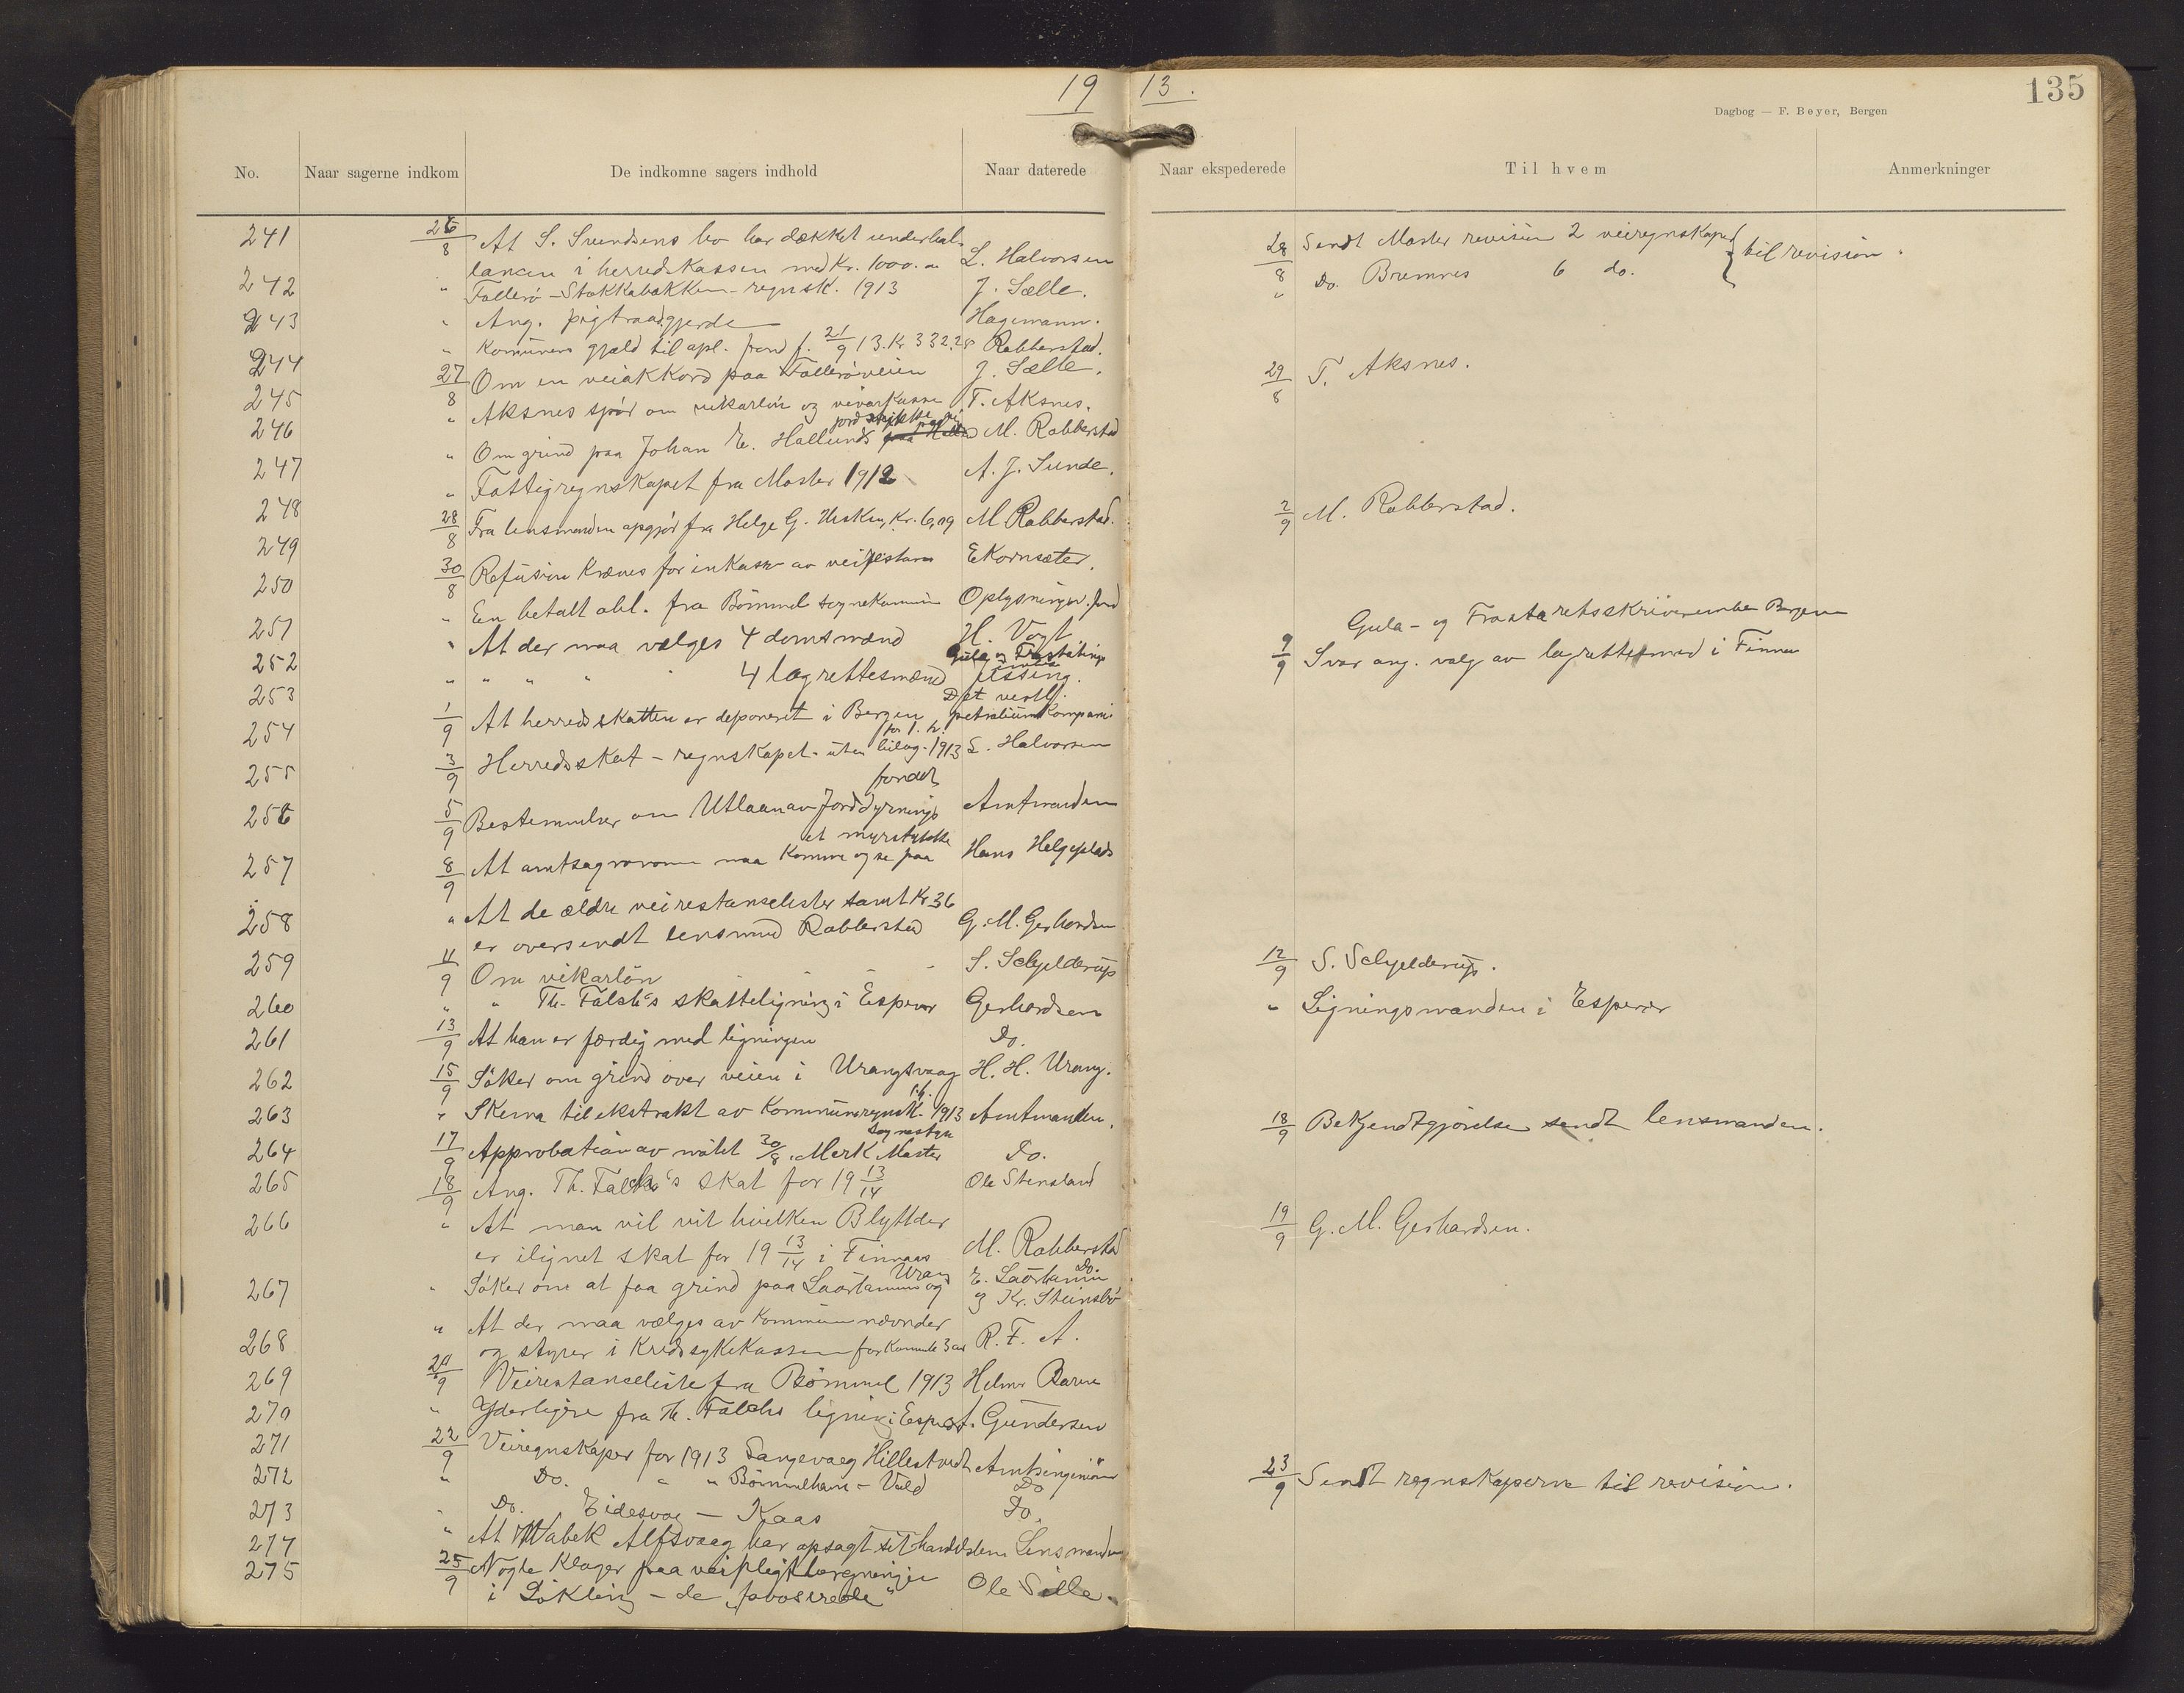 19 13.
135
Dagbog — F. Beyer, Bergen
No. Naar sagerne indkom De indkomne sagers indhold Naar daterede Naar ekspederede Til hvem Anmerkninger
241 26/8 At S. Svendsens bo har dækket underbal-
lancen i herredskassen med Kr. 1000.00 L. Halvorsen
242 " Follerö - Stokkabakken - regnsk. 1913 J. Sælle.
243 " Ang. pigtraadgjerde Hagemann.
244 " Komunens gjæld til apl. fond f. 21/9 13. Kr 332.28 Robberstad.
245 27/8 Om en veiakkord paa Folleröveien J. Sælle.
" Aksnes spör om vikarlön og T. Aksnes.
jordstykke ved
246 " Om grind paa Johan E. Hallunds M. Robberstad
247 " Fattigregnskapet fra Moster 1912 A. J. Sunde.
248 28/8 Fra lensmanden opgjör fra Helge G. Kr. 6,09 M Robberstad.
249 30/8 Refusion kræves for inkasso av veirestance Ekornsæter.
250 " En betalt abl. fra Bömmel sognekommune Oplysningsv. fond
251 " At der maa vælges 4 domsmænd H. Vogt
Gula og Frostatings
252 " " " " " 4 lagrettesmænd
Det vestl.
253 1/9 At herredsskatten er deponeret i Bergen petroliumkompani
for 1. h.
254 3/9 Herredsskat - regnskapet uten bilag. 1913 L. Halvorsen
255 fondet
256 5/9 Bestemmelser om Utlaan av Jorddyrknings Amtmanden
et myrstykke
257 8/9 At amtsagronomen maa komme og se paa Hans Helgeplads
" At de ældre veirestanselister samt Kr 36
258 er oversendt lensmand Robberstad G. M. Gerhardsen
259 11/9 Om vikarlön S. Schjelderup
260 " " Th. Falch's skatteligning i Espevær Gerhardsen
261 13/9 At han er færdig med ligningen Do.
262 15/9 Söker om grind over veien i Urangsvaag H. H. Urang.
263 " Skema til ekstrakt av Kommuneregnsk. 1913 Amtmanden.
sognestyre
264 17/9 Approbation av mötet 30/8. Merk Moster Do.
265 18/9 Ang. Th. Falch's skat for 19 13/14 Ole Stensland
266 " At man vil vit hvilken Blytt der
er ilignet skat for 19 13/14 i Finnaas M. Robberstad
Urang Do.
267 " Söker om at faa grind paa og E.
og Kr. Steinsbö
" At der maa vælges av kommunen nævnder
268 og styrer i Kredssykekassen for kommende 3 aar R. F. A.
269 20/9 Veirestanseliste fra Bömmel 1913 Helmer Baren
270 " Yderligere fra Th. Falchs ligning i Espevær A. Gundersen
271 22/9 Veiregnskaper for 1913 Langevaag Hillestvedt Amtsingeniör
272 " Do. " " Bömmelhavn - Vold Do
273 " Do. Eidesvag — Kaas Do.
274 " At Wabek Alfsvaag har opsagt sit Lensmanden
275 25/9 Nogle klager paa veipligtberegningen
i Lökling - de „favoserede" Ole Sælle.
28/8 Sendt Moster revision 2 veiregnskaper } til revision.
" Do. Bremnes 6 do.
29/8 T. Aksnes.
2/9 M. Robberstad.
Gula- og Frostatretsskriverembe Bergen
9/9 Svar ang. valg av lagrettesmænd i Finnaas
12/9 S. Schjelderup.
" Ligningsmanden i Espevær
18/9 Bekjendtgjörelse sendt lensmanden.
19/9 G. M. Gerhardsen.
23/9 Sendt regnskaperne til revision.